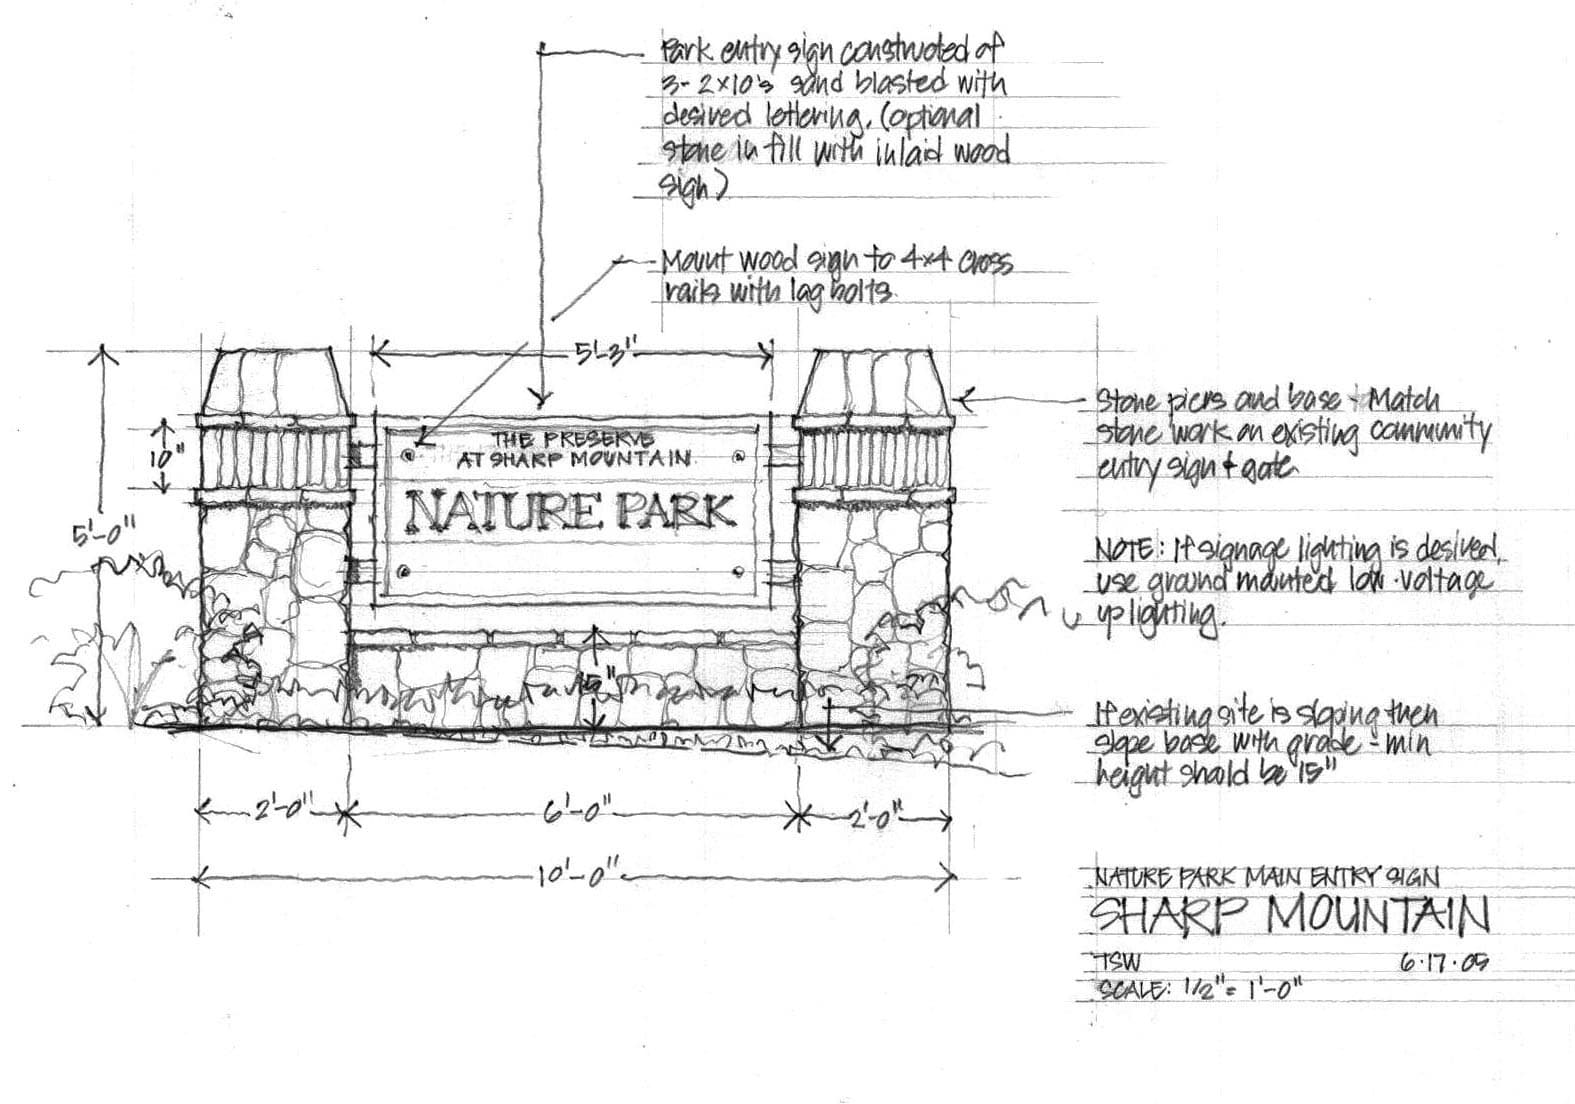 Park entry sign constructed of
3-2x10's sand blasted with
desired lettering. (optional
stone in fill with inlaid wood
sign)
Mount wood sign to 4x4 cross
rails with lag bolts.
5'-3"
10"
5'-0"
THE PRESERVE
AT SHARP MOUNTAIN
NATURE PARK
15"
Stone piers and base - Match
stone work on existing community
entry sign & gate
NOTE: If signage lighting is desired,
use ground mounted low-voltage
up lighting.
If existing site is sloping then
slope base with grade - min
height should be 15"
2'-0"
6'-0"
2'-0"
10'-0"
NATURE PARK MAIN ENTRY SIGN
SHARP MOUNTAIN
TSW 6·17·05
SCALE: 1/2" = 1'-0"